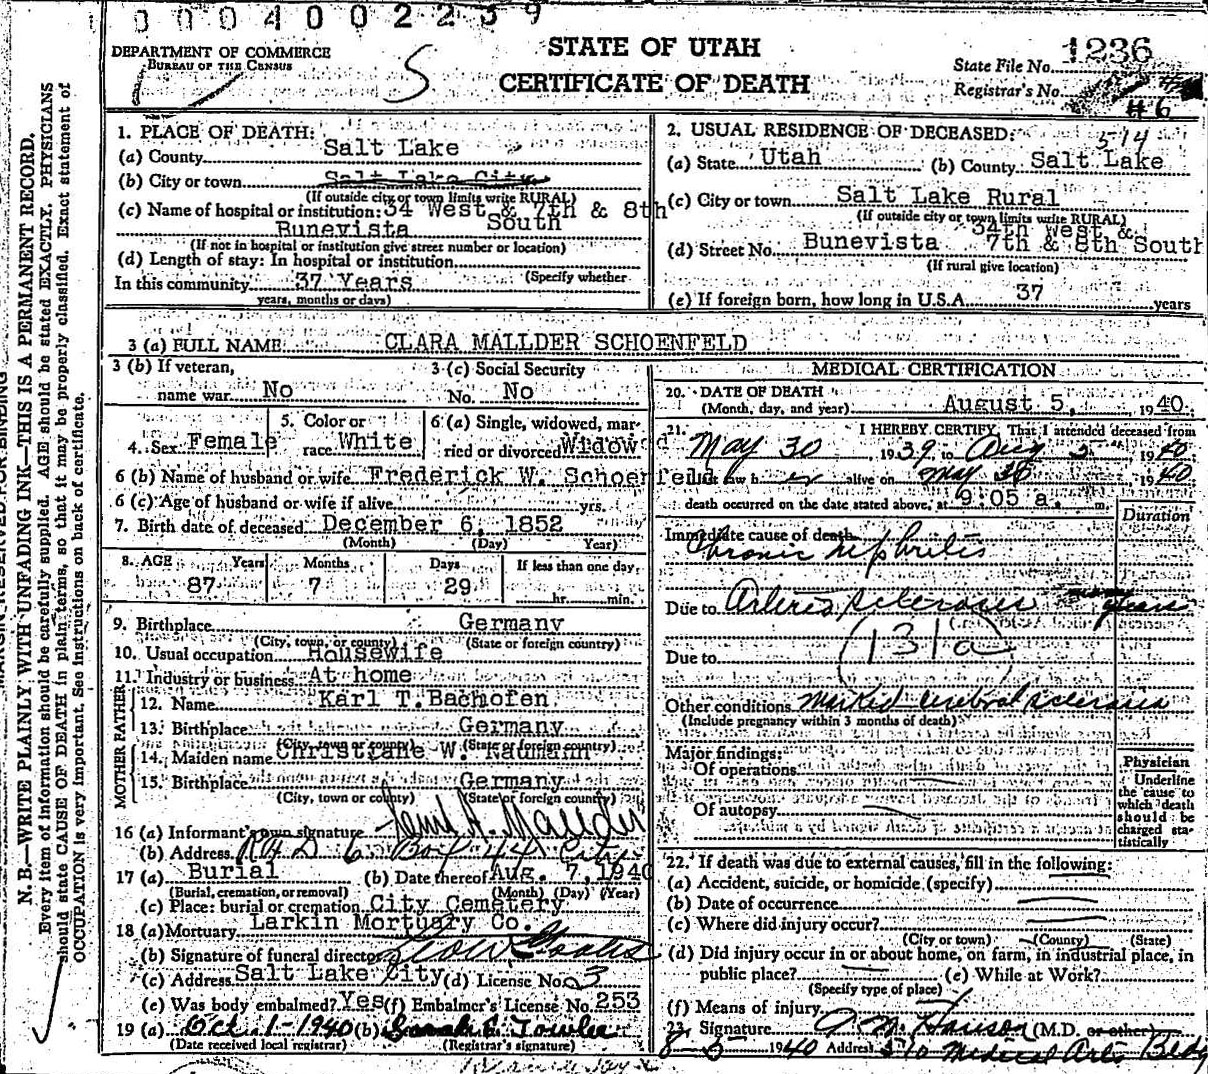 0004002239
DEPARTMENT OF COMMERCE
BUREAU OF THE CENSUS
S
STATE OF UTAH
CERTIFICATE OF DEATH
State File No. 1236
Registrar's No.
#6
N. B.—WRITE PLAINLY WITH UNFADING INK—THIS IS A PERMANENT RECORD.
Every item of information should be carefully supplied. AGE should be stated EXACTLY. PHYSICIANS
should state CAUSE OF DEATH in plain terms, so that it may be properly classified. Exact statement of
OCCUPATION is very important. See instructions on back of certificate.
MARGIN RESERVED FOR BINDING
1. PLACE OF DEATH:
(a) County Salt Lake
(b) City or town Salt Lake City
(If outside city or town limits write RURAL)
(c) Name of hospital or institution: 34 West & 7th & 8th
Bunevista South
(If not in hospital or institution give street number or location)
(d) Length of stay: In hospital or institution
(Specify whether
In this community 37 Years
years, months or days)
2. USUAL RESIDENCE OF DECEASED:
514
(a) State Utah (b) County Salt Lake
(c) City or town Salt Lake Rural
(If outside city or town limits write RURAL)
34th West &
(d) Street No. Bunevista 7th & 8th South
(If rural give location)
(e) If foreign born, how long in U.S.A. 37 years
3 (a) FULL NAME CLARA MALLDER SCHOENFELD
3 (b) If veteran,
name war No
3 (c) Social Security
No. No
4. Sex Female
5. Color or
race White
6 (a) Single, widowed, mar-
ried or divorced Widowed
6 (b) Name of husband or wife Frederick W. Schoenfeld
6 (c) Age of husband or wife if alive yrs.
7. Birth date of deceased December 6, 1852
(Month) (Day) Year)
8. AGE Years Months Days If less than one day
87 7 29 hr. min.
9. Birthplace Germany
(City, town, or county) (State or foreign country)
10. Usual occupation Housewife
11. Industry or business At home
FATHER
12. Name Karl T. Bachofen
13. Birthplace Germany
(City, town or county) (State or foreign country)
MOTHER
14. Maiden name Christiane W. Naumann
15. Birthplace Germany
(City, town or county) (State or foreign country)
16 (a) Informant's own signature
(b) Address R#D 6 Box 44 City
17 (a) Burial (b) Date thereof Aug. 7, 1940
(Burial, cremation, or removal) (Month) (Day) (Year)
(c) Place: burial or cremation City Cemetery
18 (a) Mortuary Larkin Mortuary Co.
(b) Signature of funeral director
(c) Address Salt Lake City (d) License No. 3
(e) Was body embalmed? Yes (f) Embalmer's License No. 253
19 (a) Oct 1-1940 (b) Sarah E Towler
(Date received local registrar) (Registrar's signature)
MEDICAL CERTIFICATION
20. DATE OF DEATH
(Month, day, and year) August 5, 1940
21. I HEREBY CERTIFY, That I attended deceased from
May 30 1939 to Aug 5 1940
last saw her alive on May 30 1940
death occurred on the date stated above, at 9:05 a. m.
Duration
Immediate cause of death
Chronic nephritis
Due to Arterio sclerosis years
131a
Due to
Other conditions Marked cerebral sclerosis
(Include pregnancy within 3 months of death)
Major findings:
Of operations
Of autopsy
Physician
Underline
the cause to
which death
should be
charged sta-
tistically
22. If death was due to external causes, fill in the following:
(a) Accident, suicide, or homicide (specify)
(b) Date of occurrence
(c) Where did injury occur?
(City or town) (County) (State)
(d) Did injury occur in or about home, on farm, in industrial place, in
public place? (e) While at Work?
(Specify type of place)
(f) Means of injury
23. Signature Hanson (M.D. or other)
8-5- 1940 Address 510 Medical Arts Bldg